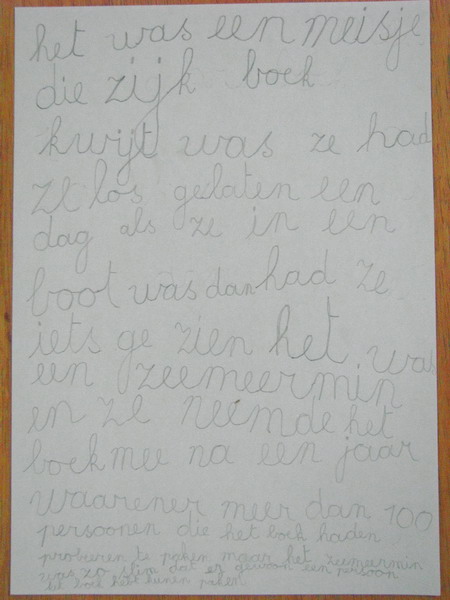 het was een meisje
die zijk boek
kwijt was ze had
ze los gelaten een
dag als ze in een
boot was dan had ze
iets ge zien het was
een zeemeermin
en ze neemde het
boek mee na een jaar
waarener meer dan 100
persoonen die het boek haden
proberen te paken maar het zeemeermin
was zo slim dat er gewoon een persoon
het boek kunen paken